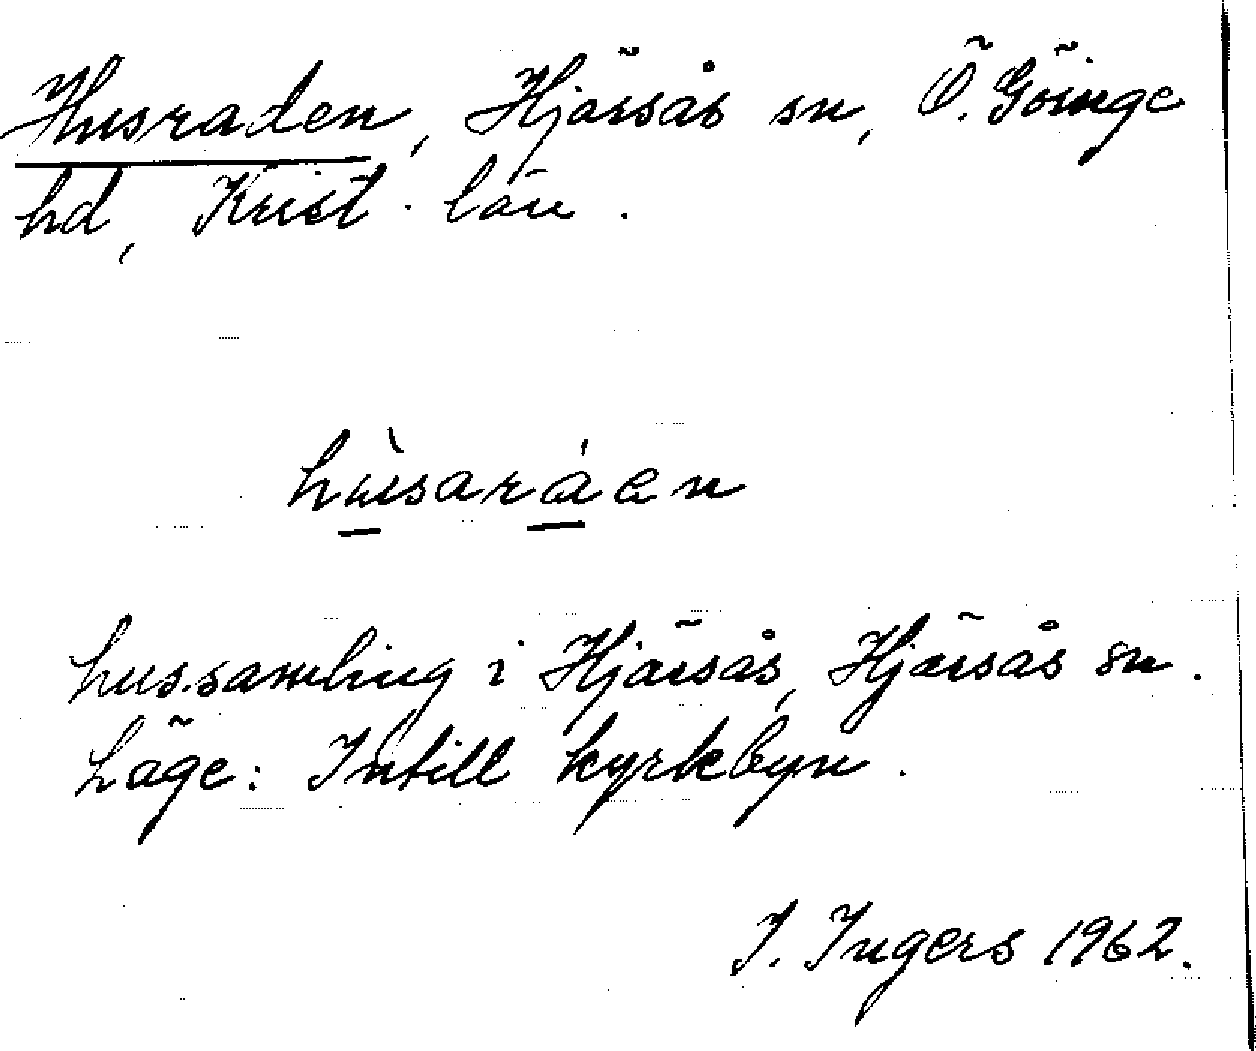 Husraden, Hjärsås sn, Ö. Göinge
hd, Krist. län.
hùsaráen
hussamling i Hjärsås, Hjärsås sn.
Läge: Intill kyrkbyn.
I. Ingers 1962.